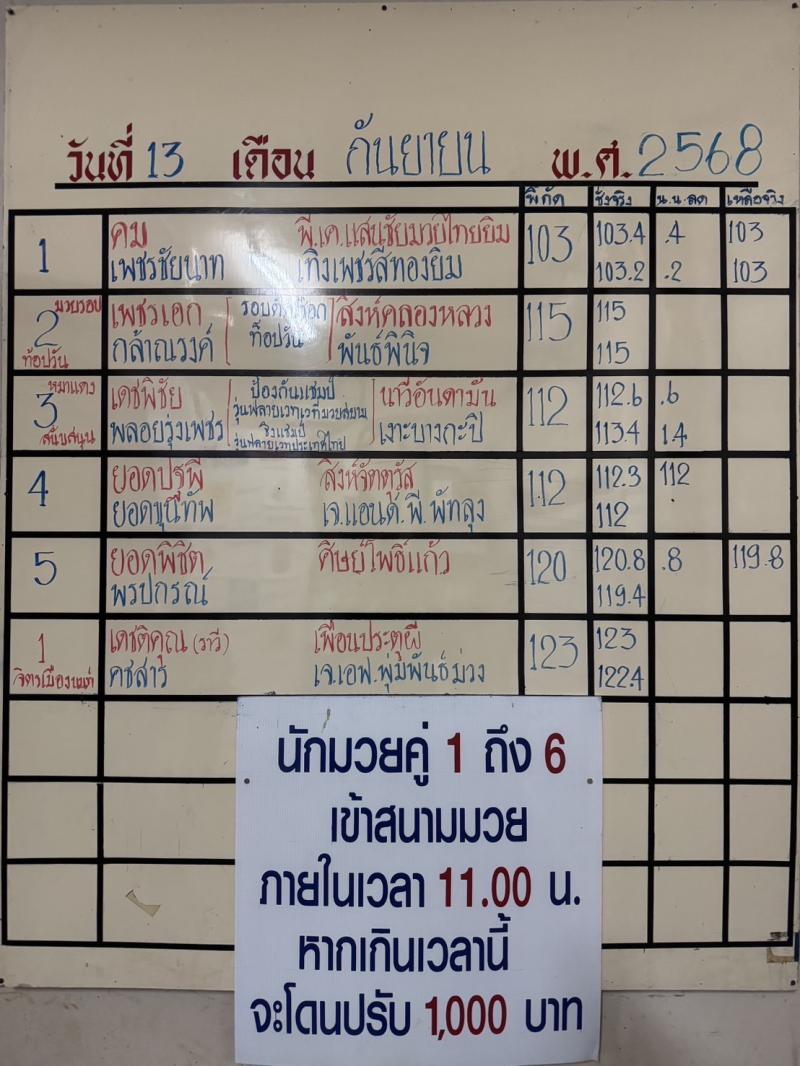 วันที่ 13 เดือน กันยายน พ.ศ. 2568
พิกัด ชั่งจริง น.น.ลด เหลือจริง
1 คม พี.เค.แสนชัยมวยไทยยิม 103 103.4 .4 103
เพชรชัยนาท เกิ่งเพชรสีทองยิม 103.2 .2 103
มวยรอบ
2 เพชรเอก รอบคัดเลือก สิงห์คลองหลวง 115 115
ท๊อปวัน กล้าณวงค์ ท๊อปวัน พันธ์พินิจ 115
หมาแดง
3 เดชพิชัย ป้องกันแชมป์ นาวีอันดามัน 112 112.6 .6
รุ่นฟลายเวทเวทีมวยสยาม
สนับสนุน พลอยรุ่งเพชร ชิงแชมป์ เงาะบางกะปิ 113.4 1.4
รุ่นฟลายเวทประเทศไทย
4 ยอดปฐพี สิงห์จัตตุวัส 112 112.3 112
ยอดขุนทัพ เจ.แอนด์.พี.พัทลุง 112
5 ยอดพิชิต ศิษย์โพธิ์แก้ว 120 120.8 .8 119.8
พรปกรณ์ 119.4
1 เดชติคุณ (วาวี) เพื่อนประตูผี 123 123
จิตรเมืองนนท์ คชสาร เจ.เอฟ.พุ่มพันธ์ม่วง 122.4
นักมวยคู่ 1 ถึง 6
เข้าสนามมวย
ภายในเวลา 11.00 น.
หากเกินเวลานี้
จะโดนปรับ 1,000 บาท